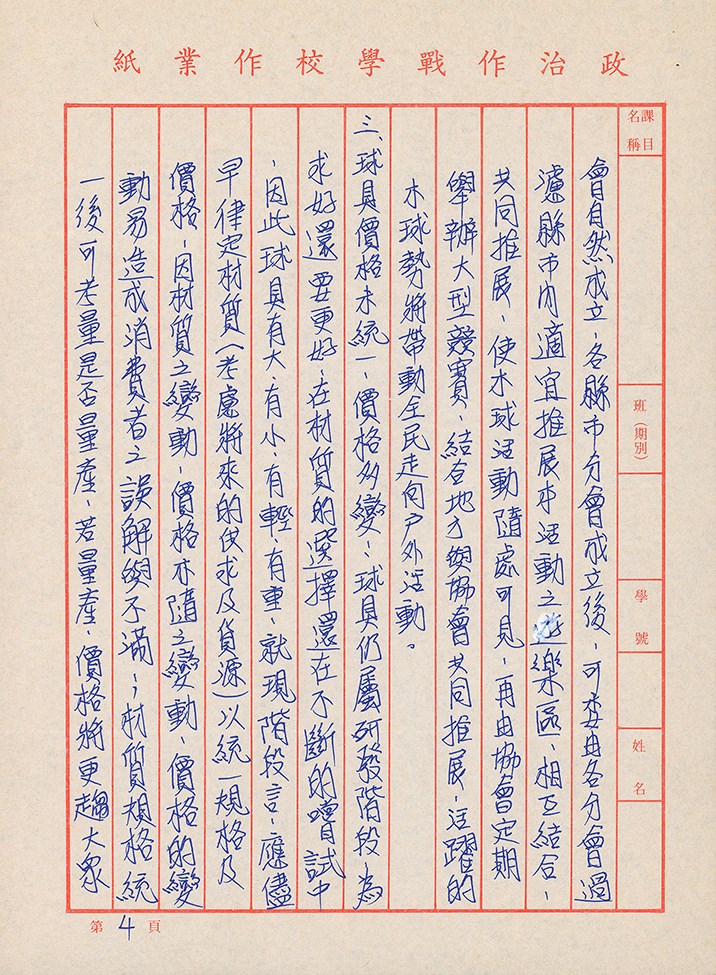 政治作戰學校作業紙
課目名稱
班（期別）
學號
姓名
會自然成立，各縣市分會成立後，可委由各分會過
濾縣市內適宜推展本活動之遊樂區，相互結合，
共同推展，使木球活動隨處可見，再由協會定期
舉辦大型競賽，結合地方與協會共同推展，活躍的
木球勢將帶動全民走向戶外活動。
三、球具價格未統一，價格多變：球具仍屬研發階段，為
求好還要更好，在材質的選擇還在不斷的嚐試中
，因此球具有大、有小、有輕、有重，就現階段言，應儘
早律定材質（考慮將來的供求及貨源）以統一規格及
價格，因材質之變動，價格亦隨之變動，價格的變
動易造成消費者之誤解與不滿；材質規格統
一後可考量是否量產，若量產，價格將更趨大眾
第4頁